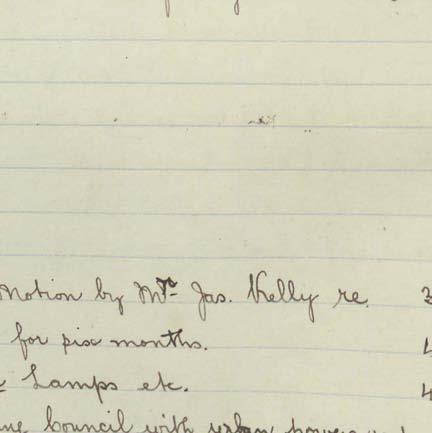 Motion by Mr. Jas. Kelly re. 3
for six months. 4
Lamps etc. 4
Council with urban powers